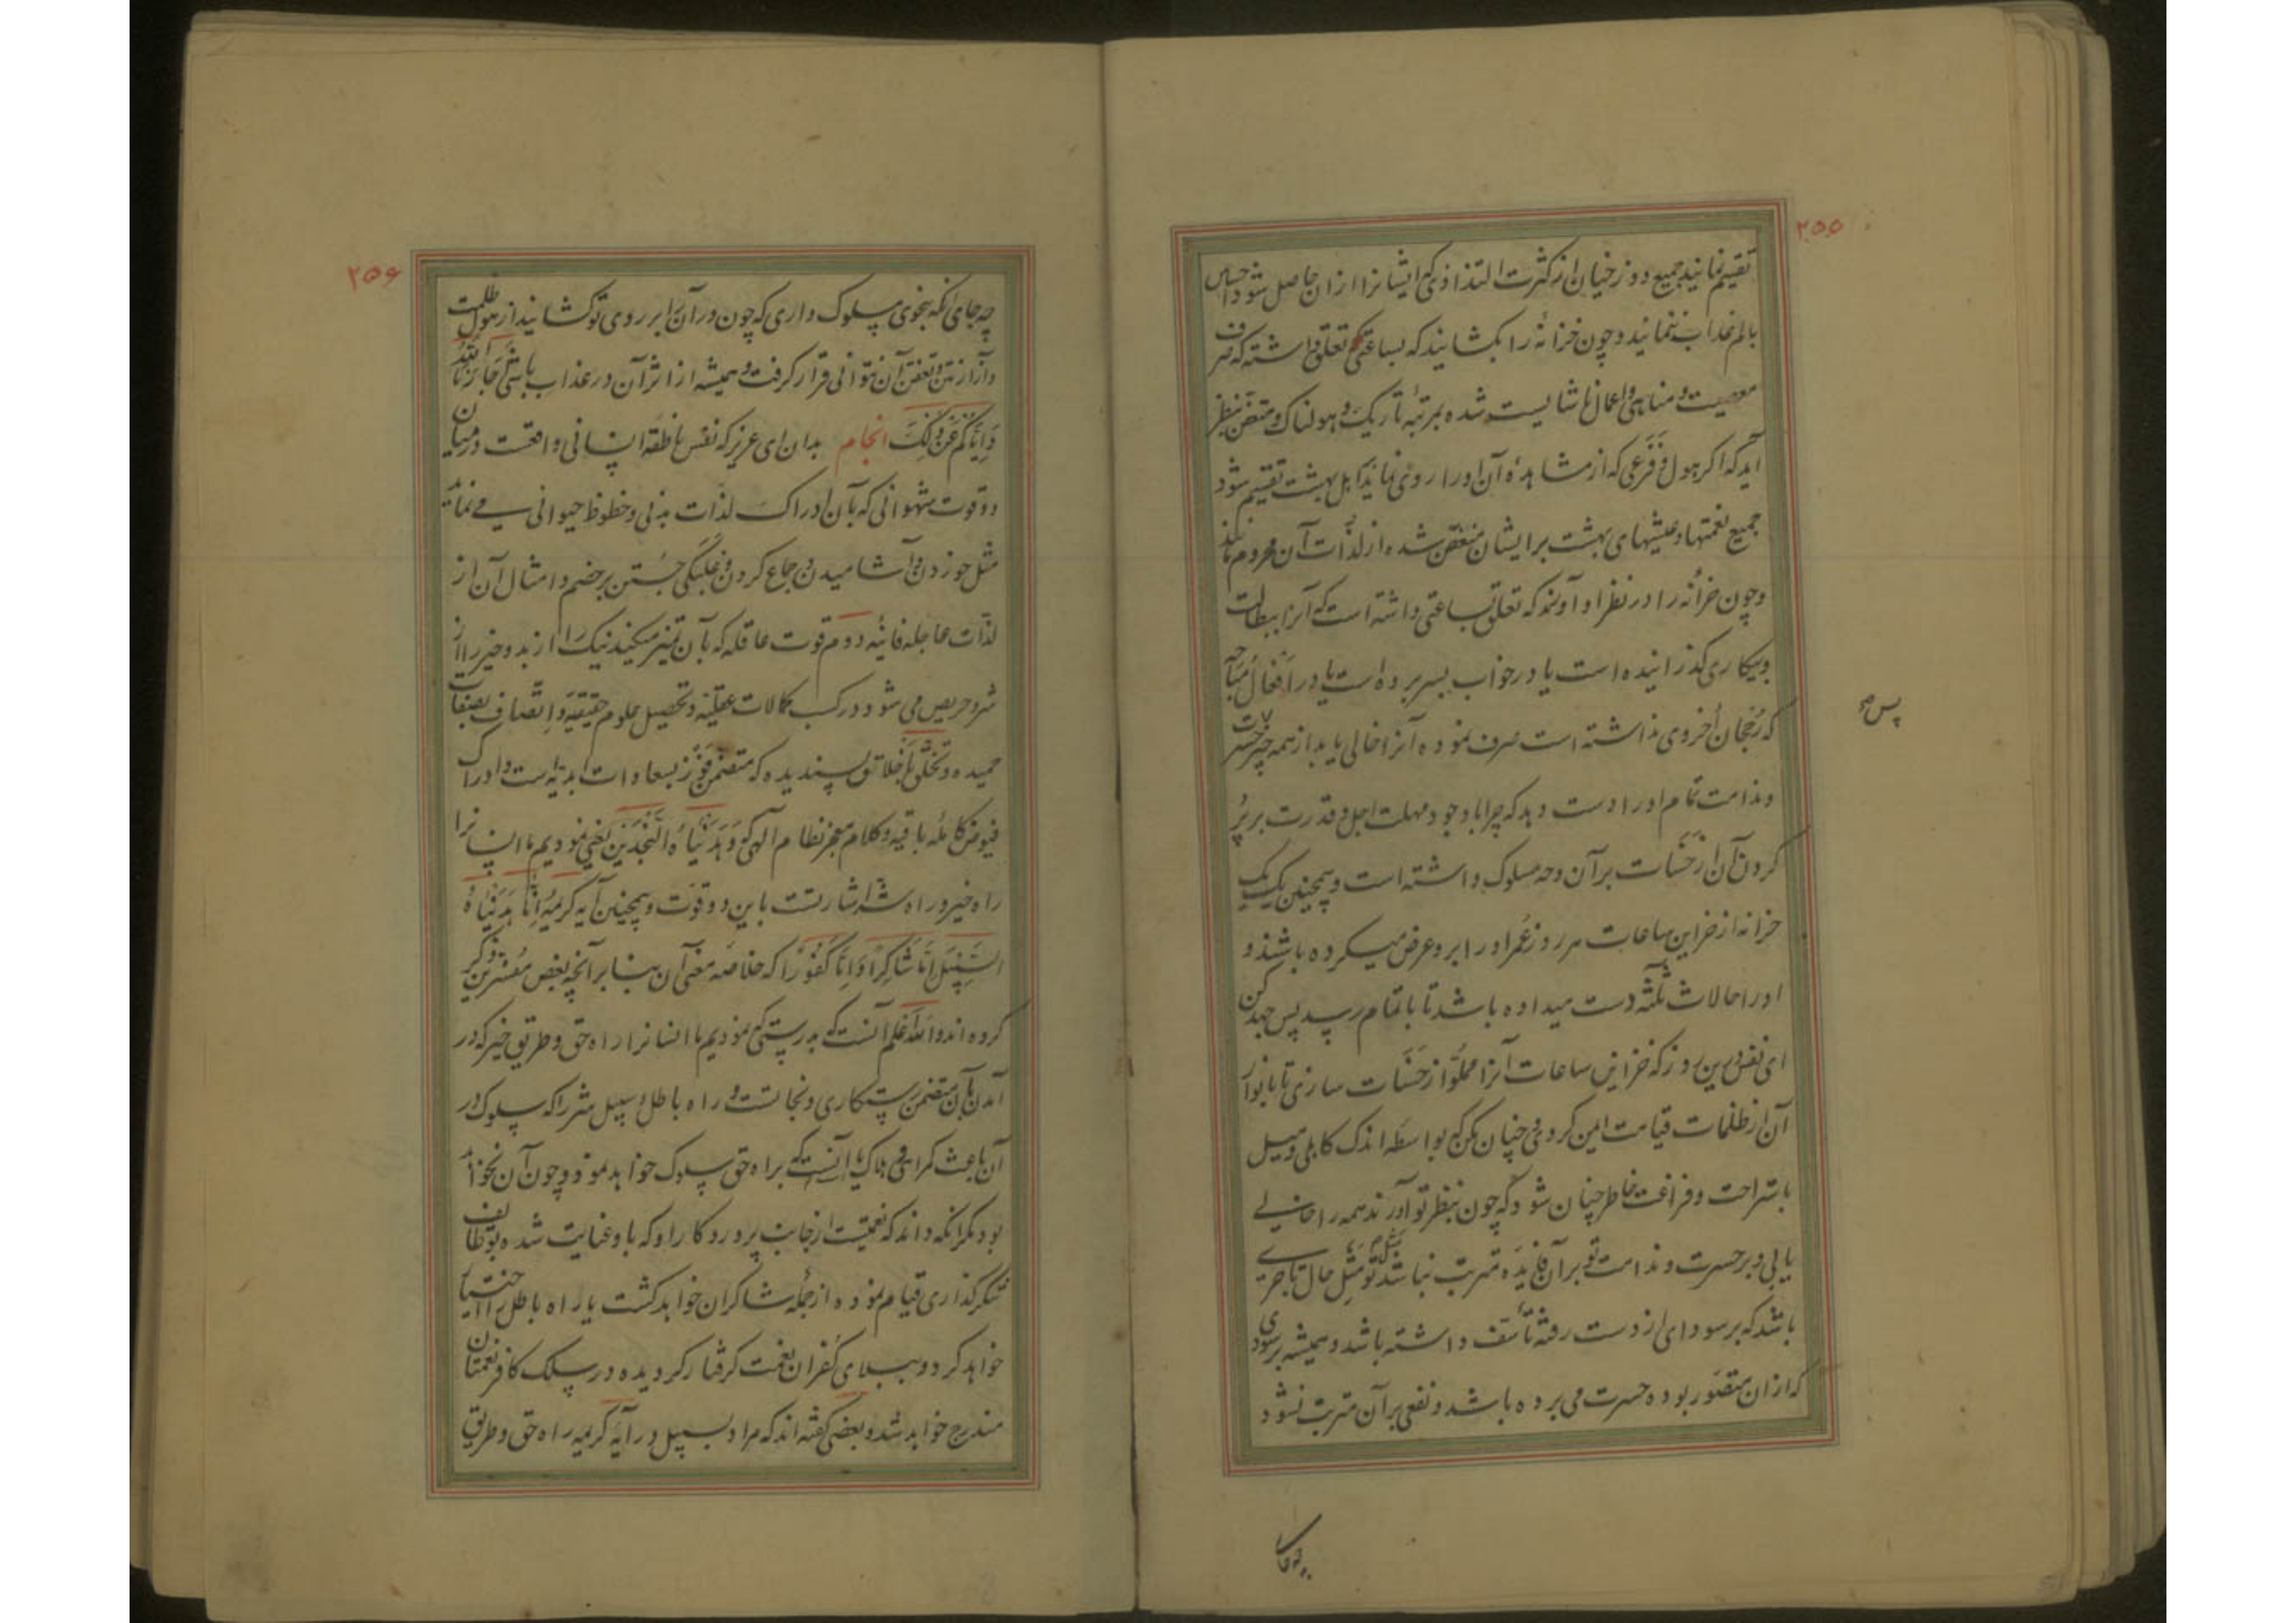 ۲۵۵
تقسیم نمایند جمیع دوزخیان از کثرت التذاذی که ایشانرا از ان حاصل شود احساس
بالم عذاب ننمایند و چون خزانهٔ را بکشایند که بساعتی تعلق داشته که صرف
معصیت و مناهی و اعمال ناشایست شده بمرتبهٔ تاریک و هولناک و متعفن بنظر
آید که اگر هول و فزعی که از مشاهدهٔ آن او را روی نماید باهل بهشت تقسیم شود
جمیع نعمتها و عیشهای بهشت بر ایشان منغص شده از لذّات آن محروم مانند
و چون خزانه را در نظر او آورند که تعلق بساعتی داشته است که آنرا ببطالت
و بیکاری گذرانیده است یا در خواب بسر برده است یا در افعال مباحه
که رُجحان اُخروی نداشته است صرف نموده آنرا خالی یابد از همه چیز حسرت
و ندامت تمام او را دست دهد که چرا با وجود مهلت اجل و قدرت بر پُر
کردن آن از حَسَنات بر آن وجه مسلوک داشته است و همچنین یک یک
خزانه از خزاین ساعات هر روز عُمر او را برو عرض میکرده باشند و
او را حالات ثلثه دست میداده باشد تا باتمام رسد پس جهد کن
ای نفس درین روز که خزاین ساعات آنرا مملوّ از حَسَنات سازی تا بانوار
آن از ظلمات قیامت ایمن گردی و چنان مکن که بواسطه اندک کاهلی و میل
باستراحت و فراغت خاطر چنان شود که چون بنظر تو آورند همه را خالی
یابی و بر حسرت و ندامت تو بر آن فایده مترتب نباشد و مثل تو مثل حال تاجری
باشد که بر سودای از دست رفته تأسّف داشته باشد و همیشه بر سودی
که از ان متصوّر بوده حسرت می برده باشد و نفعی بر آن مترتب نشود
چه جای
۲۵۶
چه جای انکه بنحوی سلوک داری که چون در آنرا بر روی تو کشایند از هول ظلمت
و آزار نتن و تعفن آن نتوانی قرار گرفت و همیشه از اثر آن در عذاب باشی اَجارَنَا اللهُ
وَاِیّاکُم عَن ذٰلِکَ انجام بدان ای عزیز که نفس ناطقه انسانی واقعست در میان
دو قوت شهوانی که بآن ادراک لذّات بدنی و حظوظ حیوانی می نماید
مثل خوردن و آشامیدن و جماع کردن و غلبگی جُستن بر خصم و امثال آن از
لذّات عاجلهٔ فانیه دوم قوت عاقله که بآن تمیز میکند نیک را از بد و خیر را از
شر و حریص می شود در کسب کمالات عقلیّه و تحصیل علوم حقیقیّه و اِتّصاف بصفات
حمیده و تخلّق باَخلاق پسندیده که متضمن فَوز بسعادات ابدیّه است و ادراک
فیوض کاملهٔ باقیه و کلام معجز نظام آلهی که وَهَدَیْناهُ النَّجْدَیْن یعنی نمودیم ما انسانرا
راه خیر و راه شر اشارتست باین دو قوّت و همچنین آیه کریمهٔ اِنّا هَدَیْناهُ
السَّبِیْلَ اِمّا شَاکِرًا وَاِمّا کَفُوْرًا که خلاصه معنی آن بنا بر آنچه بعض مفسّرین ذکر
کرده اند والله اعلم آنست که بدرستی که نمودیم ما انسانرا راه حق و طریق خیر که در
آمدن بآن متضمن رستکاری و نجاتست و راه باطل و سبیل شر را که سلوک در
آن باعث گمراهی و هلاک یا آنست که براه حق سلوک خواهد نمود و چون آن نخواهد
بود مگر انکه داند که نعمتیست از جانب پروردگار او که باو عنایت شده بوظایف
شکرگذاری قیام نموده از جُمله شاکران خواهد گشت یا راه باطل را اختیار
خواهد کرد و ببلای کُفران نعمت گرفتار گردیده در سلک کافر نعمتان
مندرج خواهد شد و بعضی گفته اند که مراد بسبیل در آیهٔ کریمه راه حق و طریق